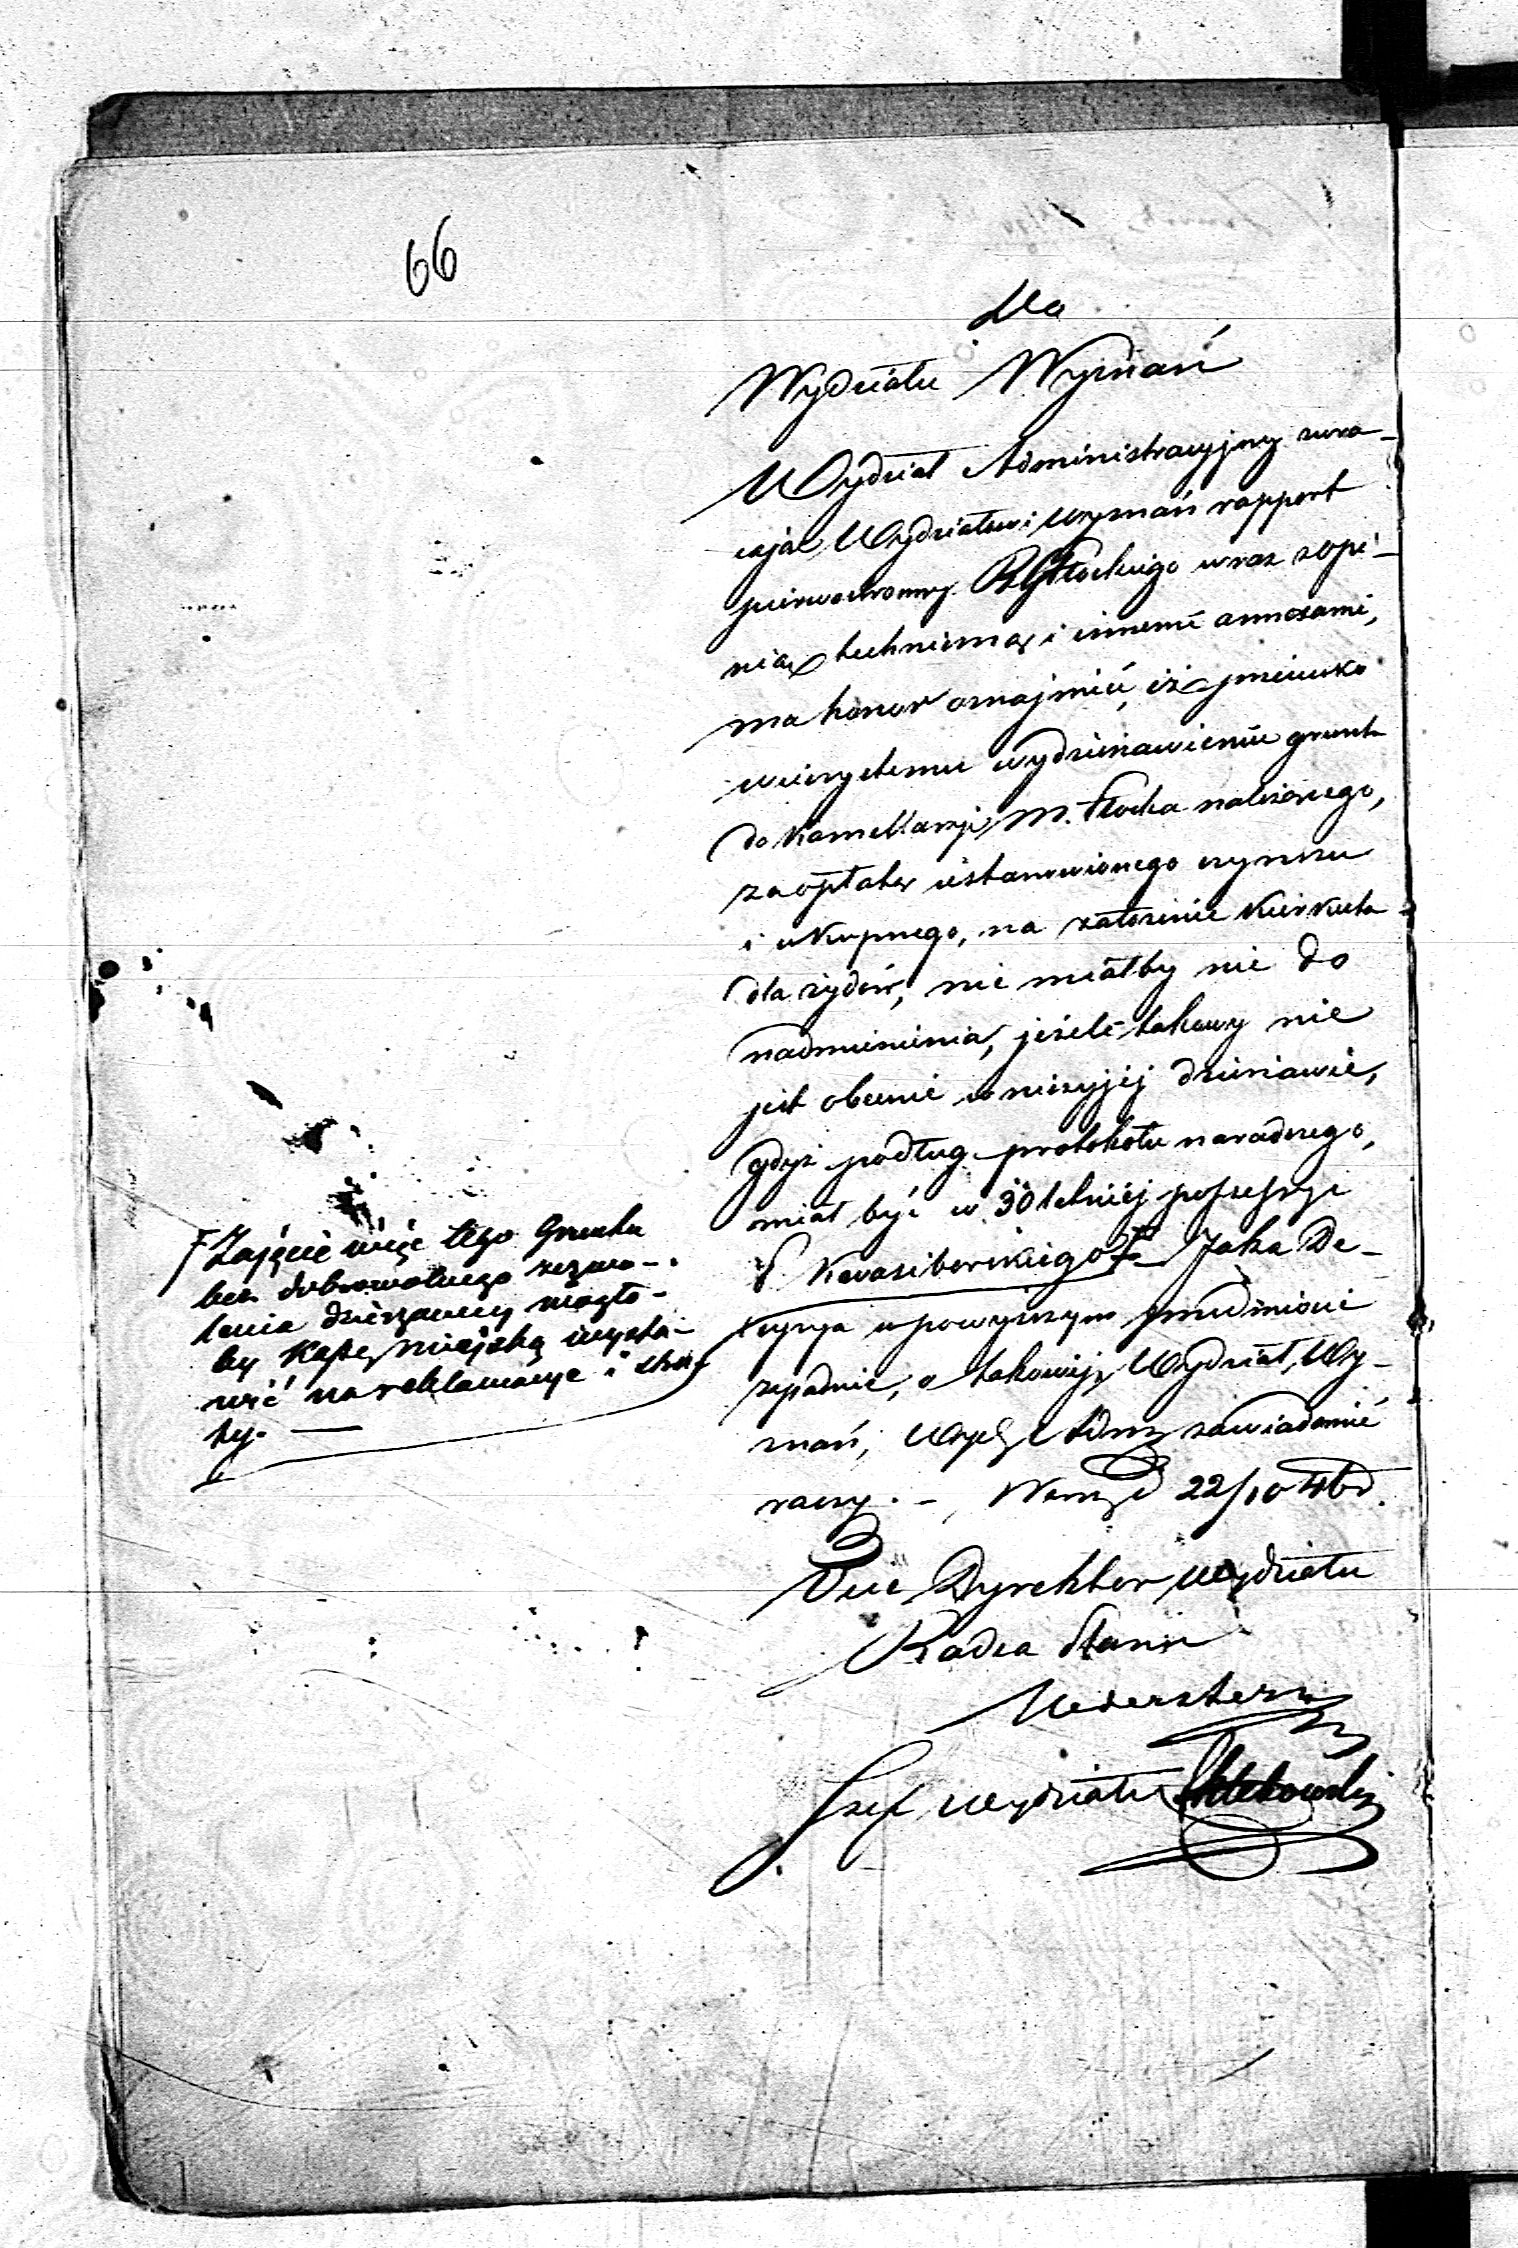 66
Dla
Wydziału Wyznań
Wydział Administracyjny zwra-
cając Wydziałowi Wyznań rapport
R. G. Płockiego wraz z opi-
nią techniczną i innemi annexami,
ma honor oznajmić, iż przeciwko
wieczystemu wydzierżawieniu gruntu
do Kamellaryi m. Płocka należącego,
za opłatą ustanowionego czynszu
i wkupnego, na założenie Kirkuta
dla żydów, nic miałby nie do
nadmienienia, jeżeli takowy nie
jest obecnie w niczyjej dzierżawie,
gdyż podług protokołu naradczego,
miał być w 30 letniej possessyi
P. Kwasiborskiego F Jaka De-
cyzya w powyższym przedmiocie
zapadnie, o takowej Wydział Wy-
znań, Wydz. Adm. zawiadomić
raczy. – Warsz. d 22/10 4br.
Vice Dyrektor Wydziału
Radca Stanu
Szef Wydziału
F Zajęcie więc tego Gruntu
bez dobrowolnego zezwo-
lenia dzierżawcy mogło-
by Kassę miejską wysta-
wić na reklamacye i stra-
ty. —